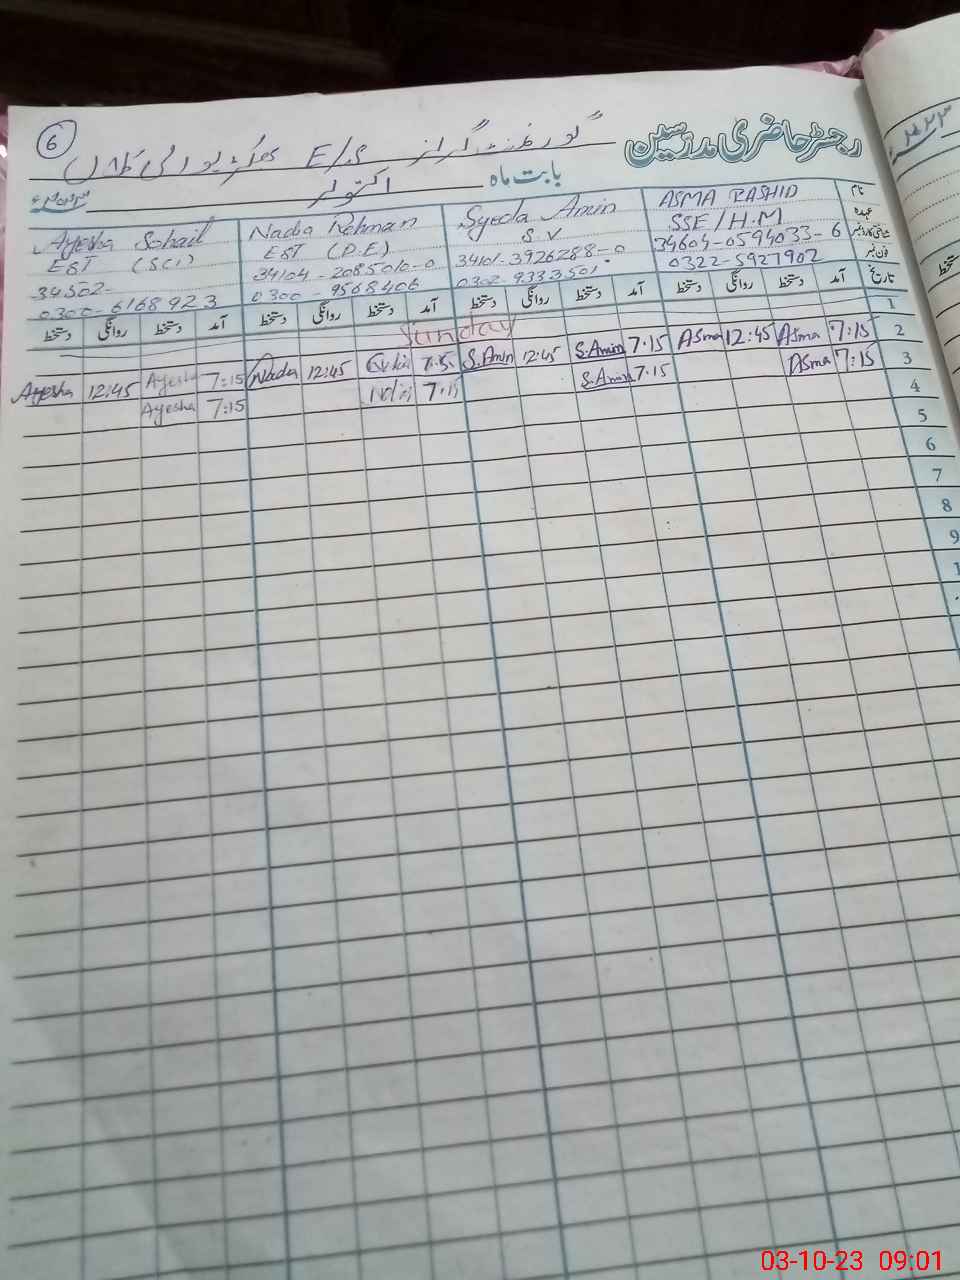 6
رجسٹر حاضری مدرسین
گورنمنٹ گرلز E/S
بابت ماہ اکتوبر ۲۰۲۳ء
نام ASMA RASHID Syeda Amin Nadia Rehman Ayesha Sohail
عہدہ SSE/H.M S.V EST (P.E) EST (SCI)
شناختی کارڈ نمبر 34604-0594033-6 34101-3926288-0 34104-2085010-0 34502-
فون نمبر 0322-5927902 0302-9333501 0300-9568406 0300-6168923
تاریخ آمد دستخط روانگی دستخط آمد دستخط روانگی دستخط آمد دستخط روانگی دستخط آمد دستخط روانگی دستخط
1 Sunday
2 7:15 Asma 12:45 Asma 7.15 S.Amin 12:45 S.Amin 7.15 12:45 Nadia 7:15 Ayesha 12:45 Ayesha
3 7:15 Asma 7.15 S.Amin 7.15 7:15 Ayesha
4
5
6
7
8
9
03-10-23 09:01